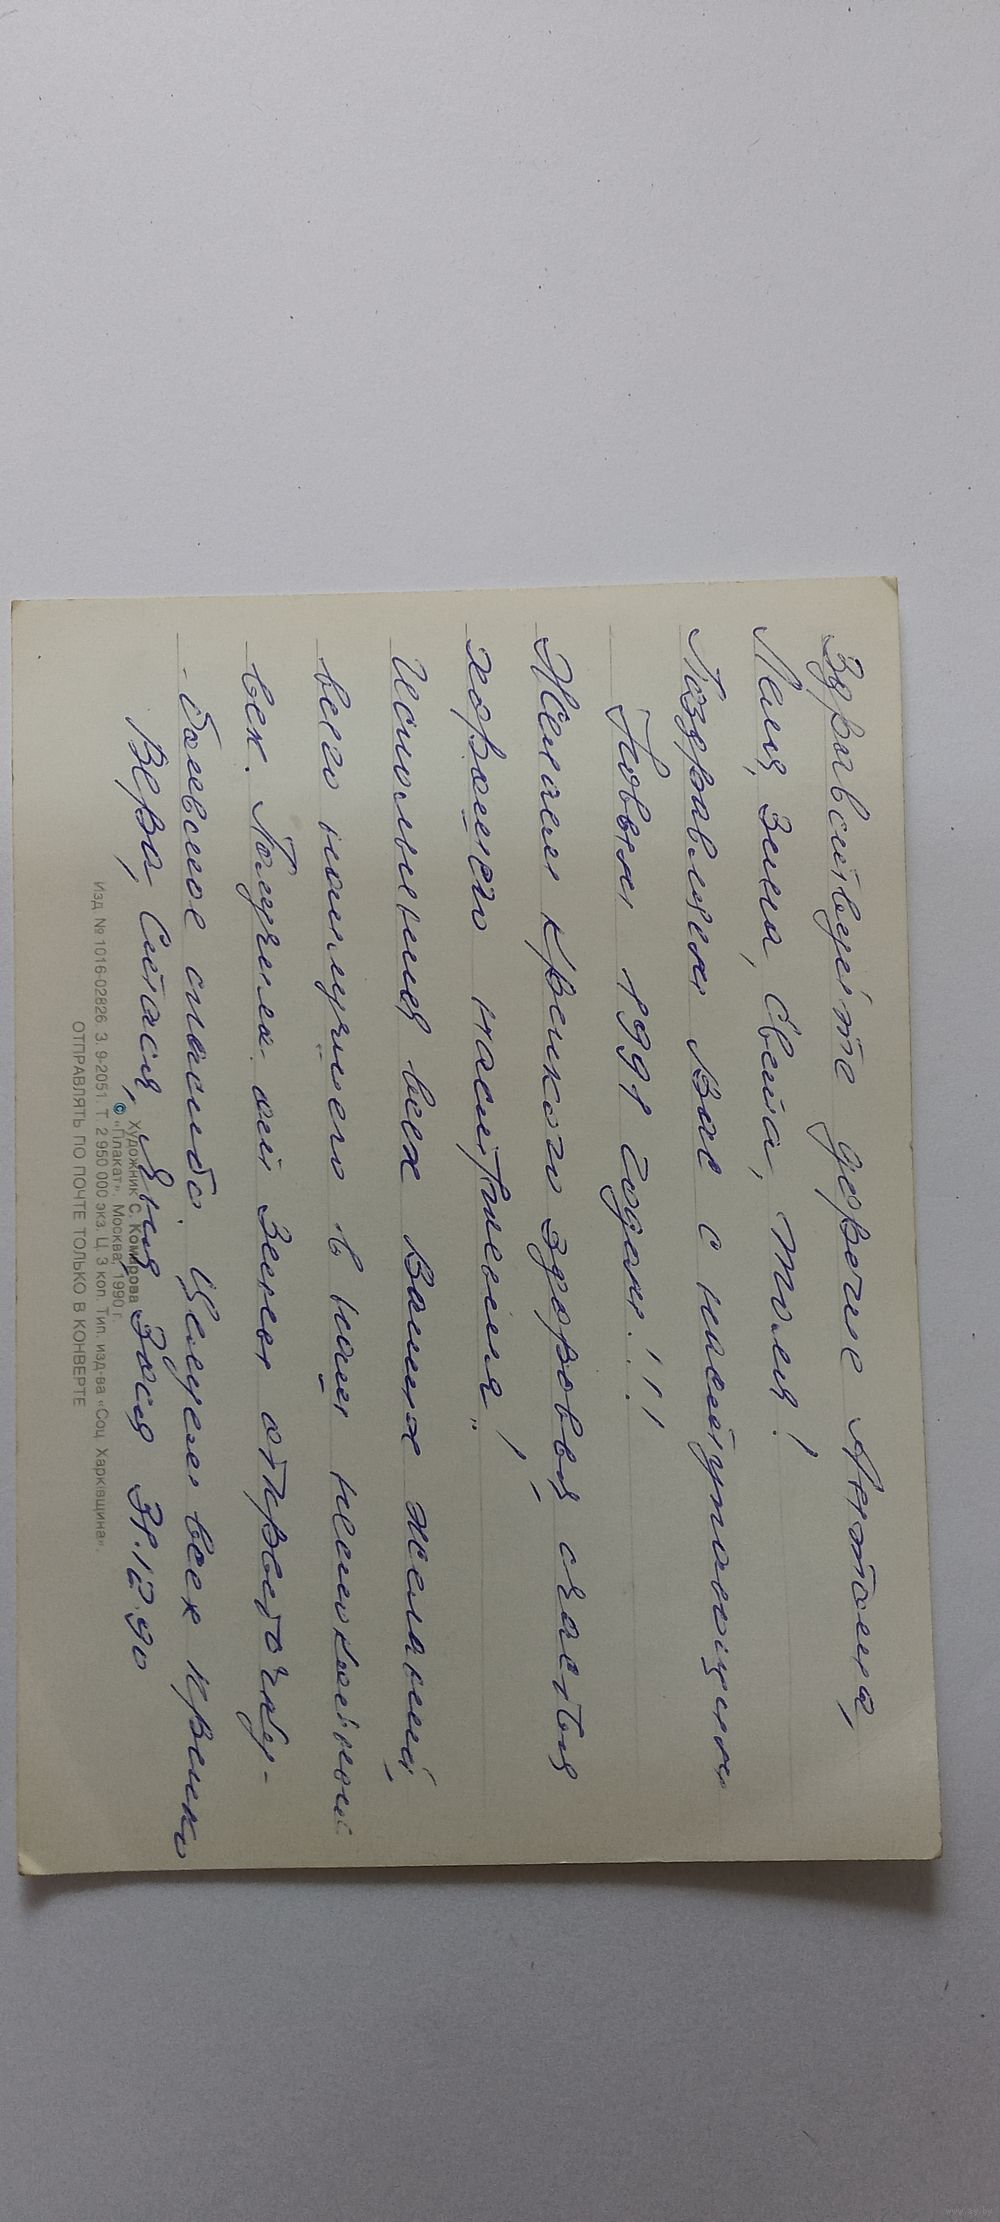 Здравствуйте дорогие Антонина,
Леля, Зина, Света, Толя!
Поздравляем Вас с наступающим
Новым 1991 годом!!!
Желаем крепкого здоровья счастья
хорошего настроения!
Исполнения всех Ваших желаний,
всего наилучшего в наш неспокойный
век. Получила от Зины открыточку-
большое спасибо. Целуем всех крепко
Вера, Стася, Яня, Зося 31.12.90
Художник С. Комарова
© «Плакат». Москва. 1990 г.
Изд № 1016-02826 З. 9-2051. Т 2 950 000 экз. Ц. 3 коп. Тип. изд-ва «Соц Харківщина».
ОТПРАВЛЯТЬ ПО ПОЧТЕ ТОЛЬКО В КОНВЕРТЕ
www.ay.by